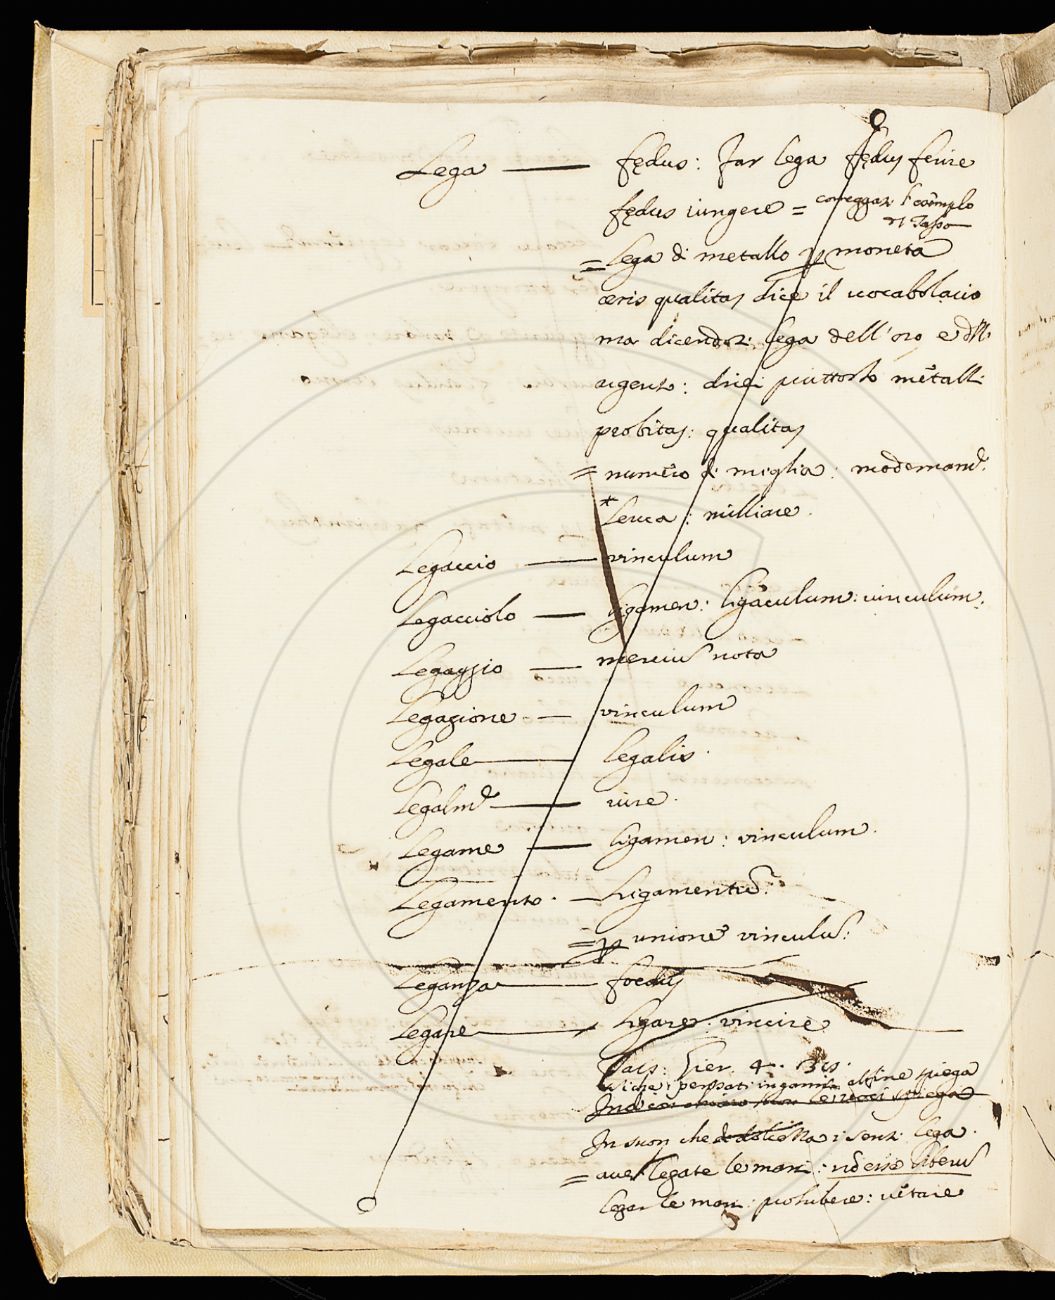 Lega — fędus: far lega fędus ferire
fędus iungere =
= lega di metallo p moneta
aeris qualitas dice il vocabolario
ma dicendosi lega dell'oro e dell'
argento: direi piuttosto metalli
probitas: qualitas
= numero di miglia:
* Leuca: milliare.
Legaccio — vinculum
Legacciolo — ligamen: ligaculum: vinculum.
Legaggio — mercium nota
Legagione — vinculum
Legale — legalis.
Legalmte — iure.
Legame — ligamen: vinculum.
Legamento — Ligamentũ:
= p unione vinculũ:
Leganza — foedus
Legare — ligare: vincire
Tass: Gier. 4.
alfine spiega
In suon che i sensi lega.
= aver legate le mani: liberũ
legar le mani: prohibere: vetare